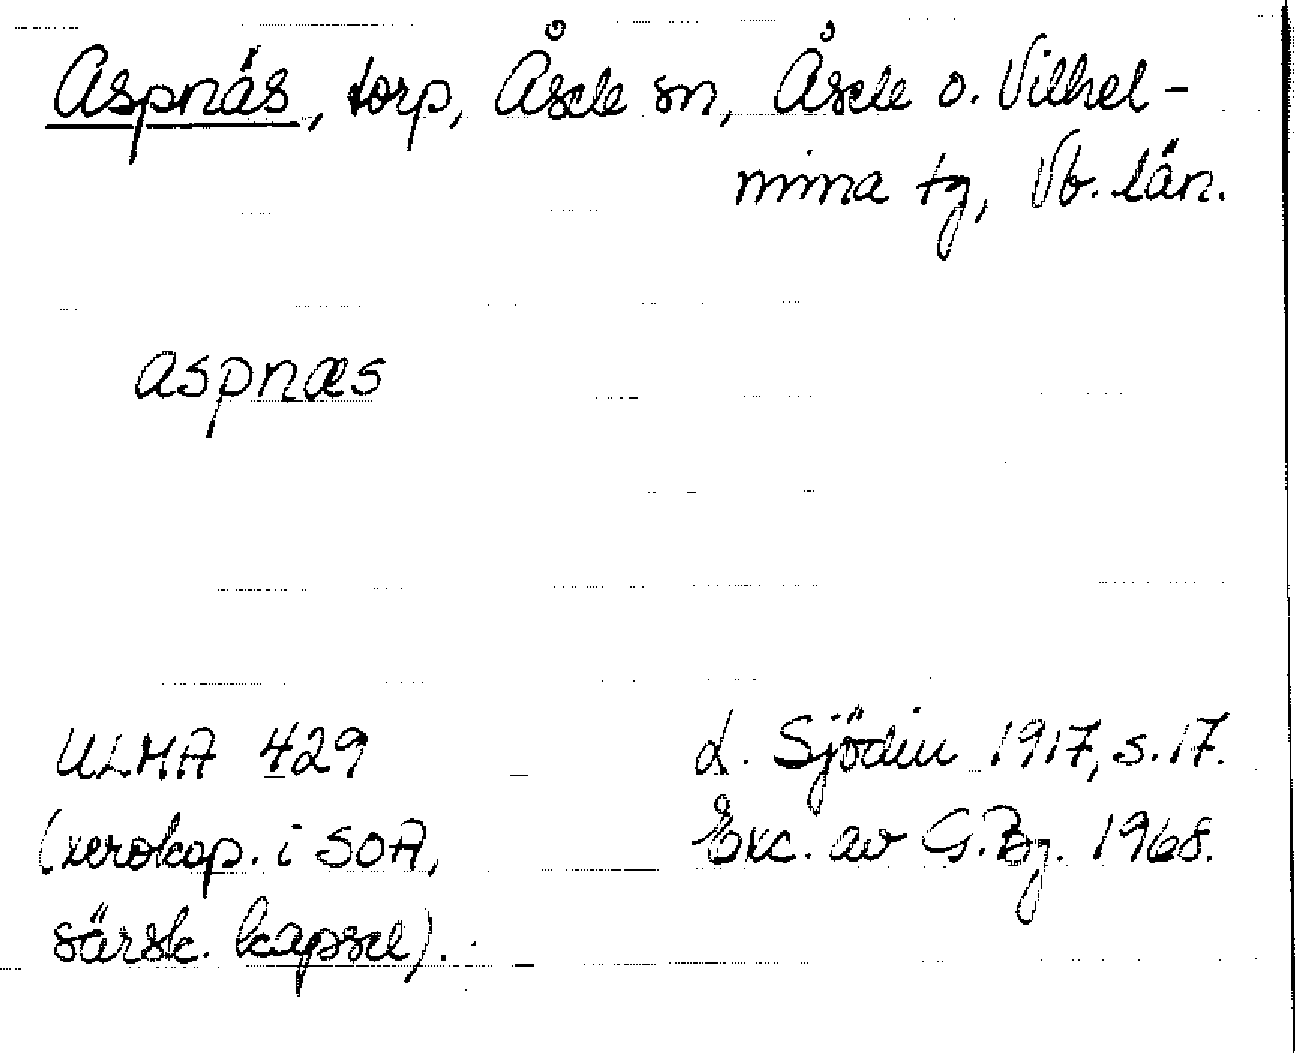 Aspnäs, torp, Åsele sn, Åsele o. Vilhel-
mina tg, Vb. län.
aspnæs
ULMA 429
L. Sjödin 1917, s. 17.
(xerokop. i SOA,
Exc. av G. Bg. 1968.
särsk. kapsel).